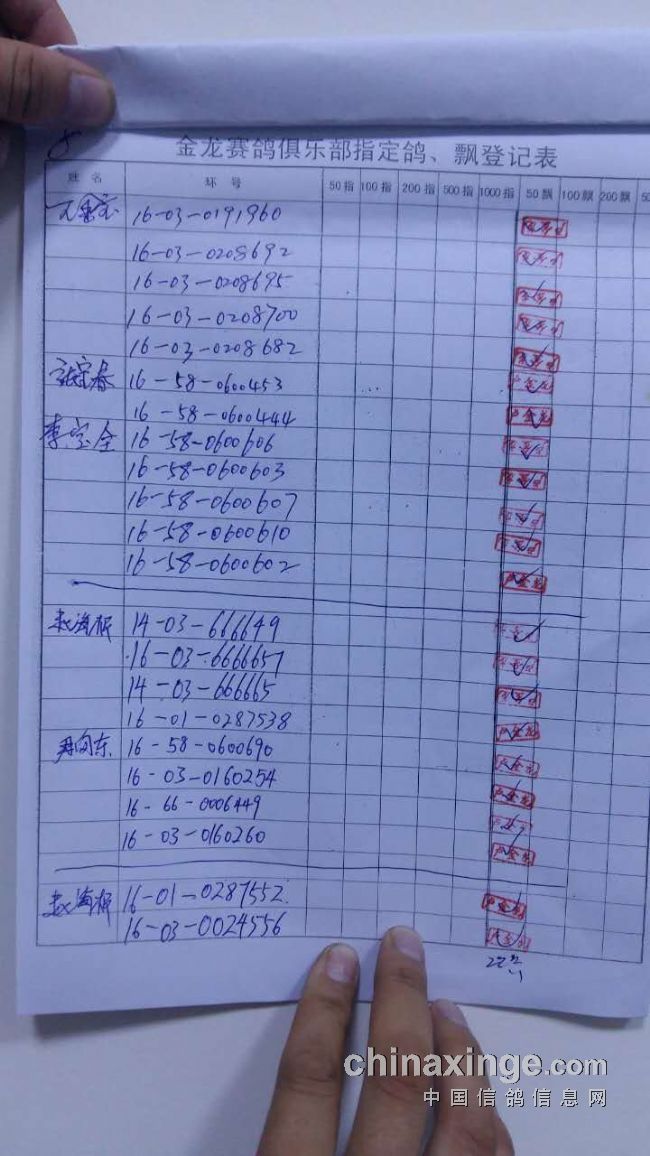 8
金龙赛鸽俱乐部指定鸽、飘登记表
姓 名 环 号 50指 100指 200指 500指 1000指 50飘 100飘 200飘 50
16-03-0191960
16-03-0208692
16-03-0208695
16-03-0208700
16-03-0208682
张守春 16-58-0600453
16-58-0600444
李宝全 16-58-0600606
16-58-0600603
16-58-0600607
16-58-0600610
16-58-0600602
赵海根 14-03-666649
16-03-6666657
14-03-666665
16-01-0287538
冉向东 16-58-0600690
16-03-0160254
16-66-0006449
16-03-0160260
赵海根 16-01-0287552
16-03-0024556
22
chinaxinge.com
中国信鸽信息网